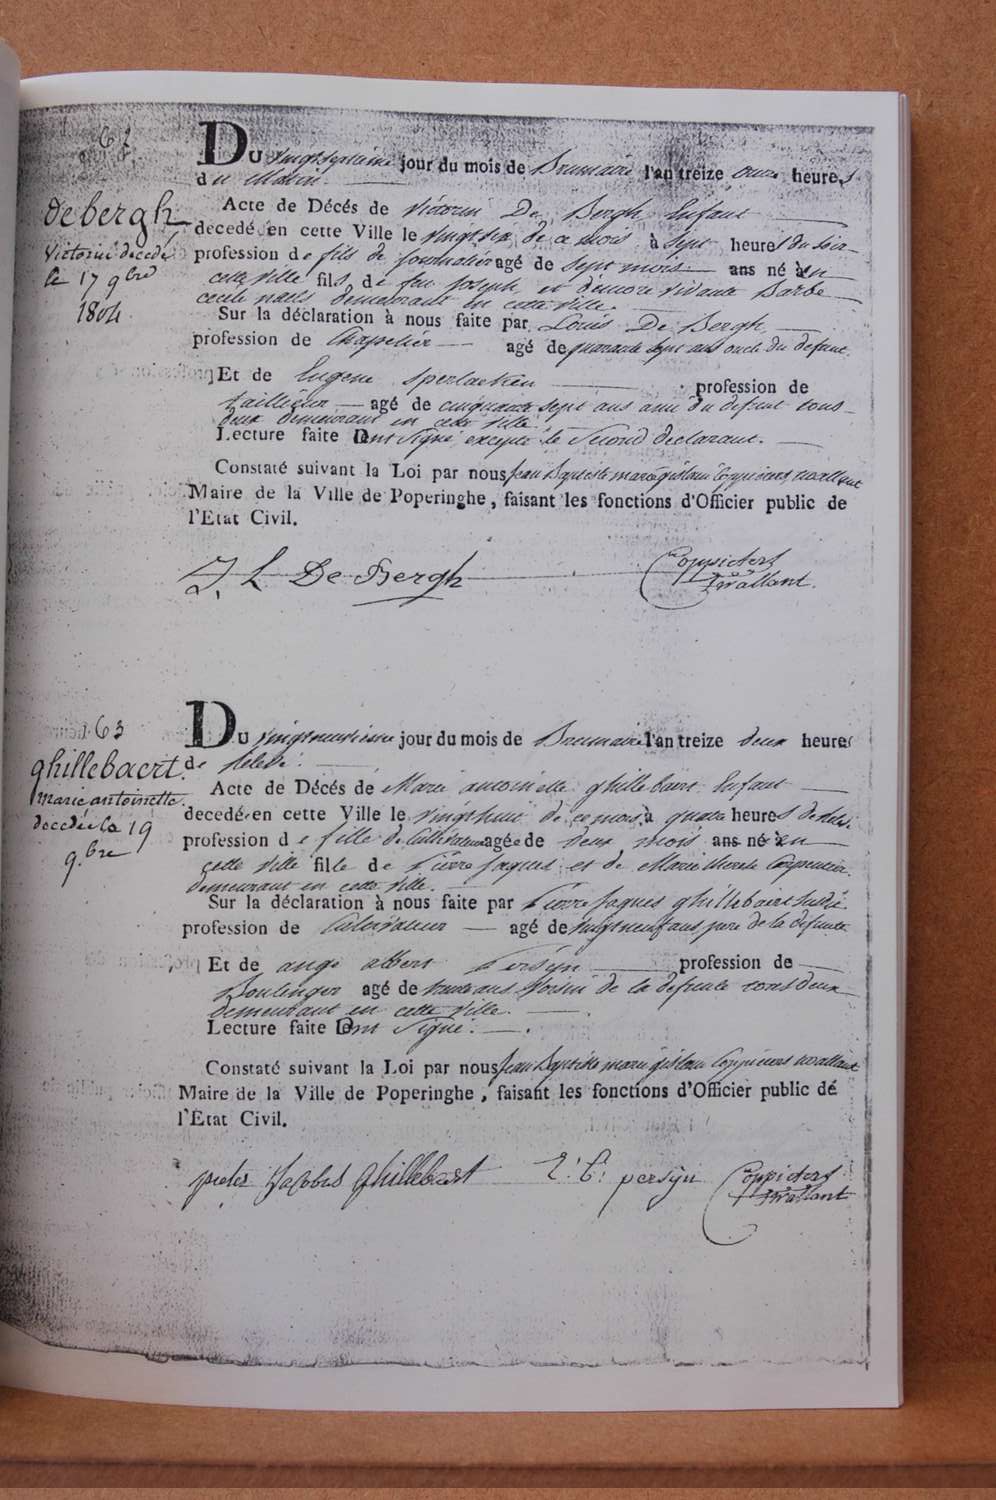 62
debergh
Victorine decedé
le 17 9bre
1804
Du vingtseptieme jour du mois de Brumaire l'an treize onze heures
du Matin.
Acte de Décés de Victorin De Bergh Enfant
decedé en cette Ville le vingtsix de ce mois à sept heures du soir
profession de fils de journalier agé de sept mois ans né à en
cette ville fils de feu Joseph et demeure vivante Barbe
cecile naels demeurant en cette ville.
Sur la déclaration à nous faite par Louis De Bergh
profession de Chapelier agé de quarante sept ans oncle du defunt.
Et de Eugene Sperlaeken profession de
tailleur agé de cinquante sept ans ami du defunt tous
deux demeurant en cette ville.
Lecture faite ont signé excepté le second declarant.
Constaté suivant la Loi par nous Jean Baptiste marie gislain Coppieters twallant
Maire de la Ville de Poperinghe, faisant les fonctions d'Officier public de
l'Etat Civil.
J. L De Bergh
Coppieters
twallant.
63
ghillebaert.
marie antoinette
decedée le 19
9.bre
Du vingtneuvieme jour du mois de Brumaire l'an treize deux heures
de relevé.
Acte de Décés de Marie antoinette ghillebaert Enfant
decedé en cette Ville le vingthuit de ce mois à quatre heures de relevé
profession de fille de Cultivateur agée de deux mois ans né à en
cette ville fille de Pierre Jaques et de Marie therese Carpentier.
demeurant en cette ville.
Sur la déclaration à nous faite par Pierre Jaques ghillebaert susdit
profession de Cultivateur agé de vingtneuf ans pere de la defunte.
Et de ange albert Persyn profession de
Boulenger agé de trente ans Voisin de la defunte tous deux
demeurant en cette ville.
Lecture faite ont signé.
Constaté suivant la Loi par nous Jean Baptiste marie gislain Coppieters twallant
Maire de la Ville de Poperinghe, faisant les fonctions d'Officier public dé
l'Etat Civil.
pieter Jacobus ghillebaert
persijn
Coppieters
twallant